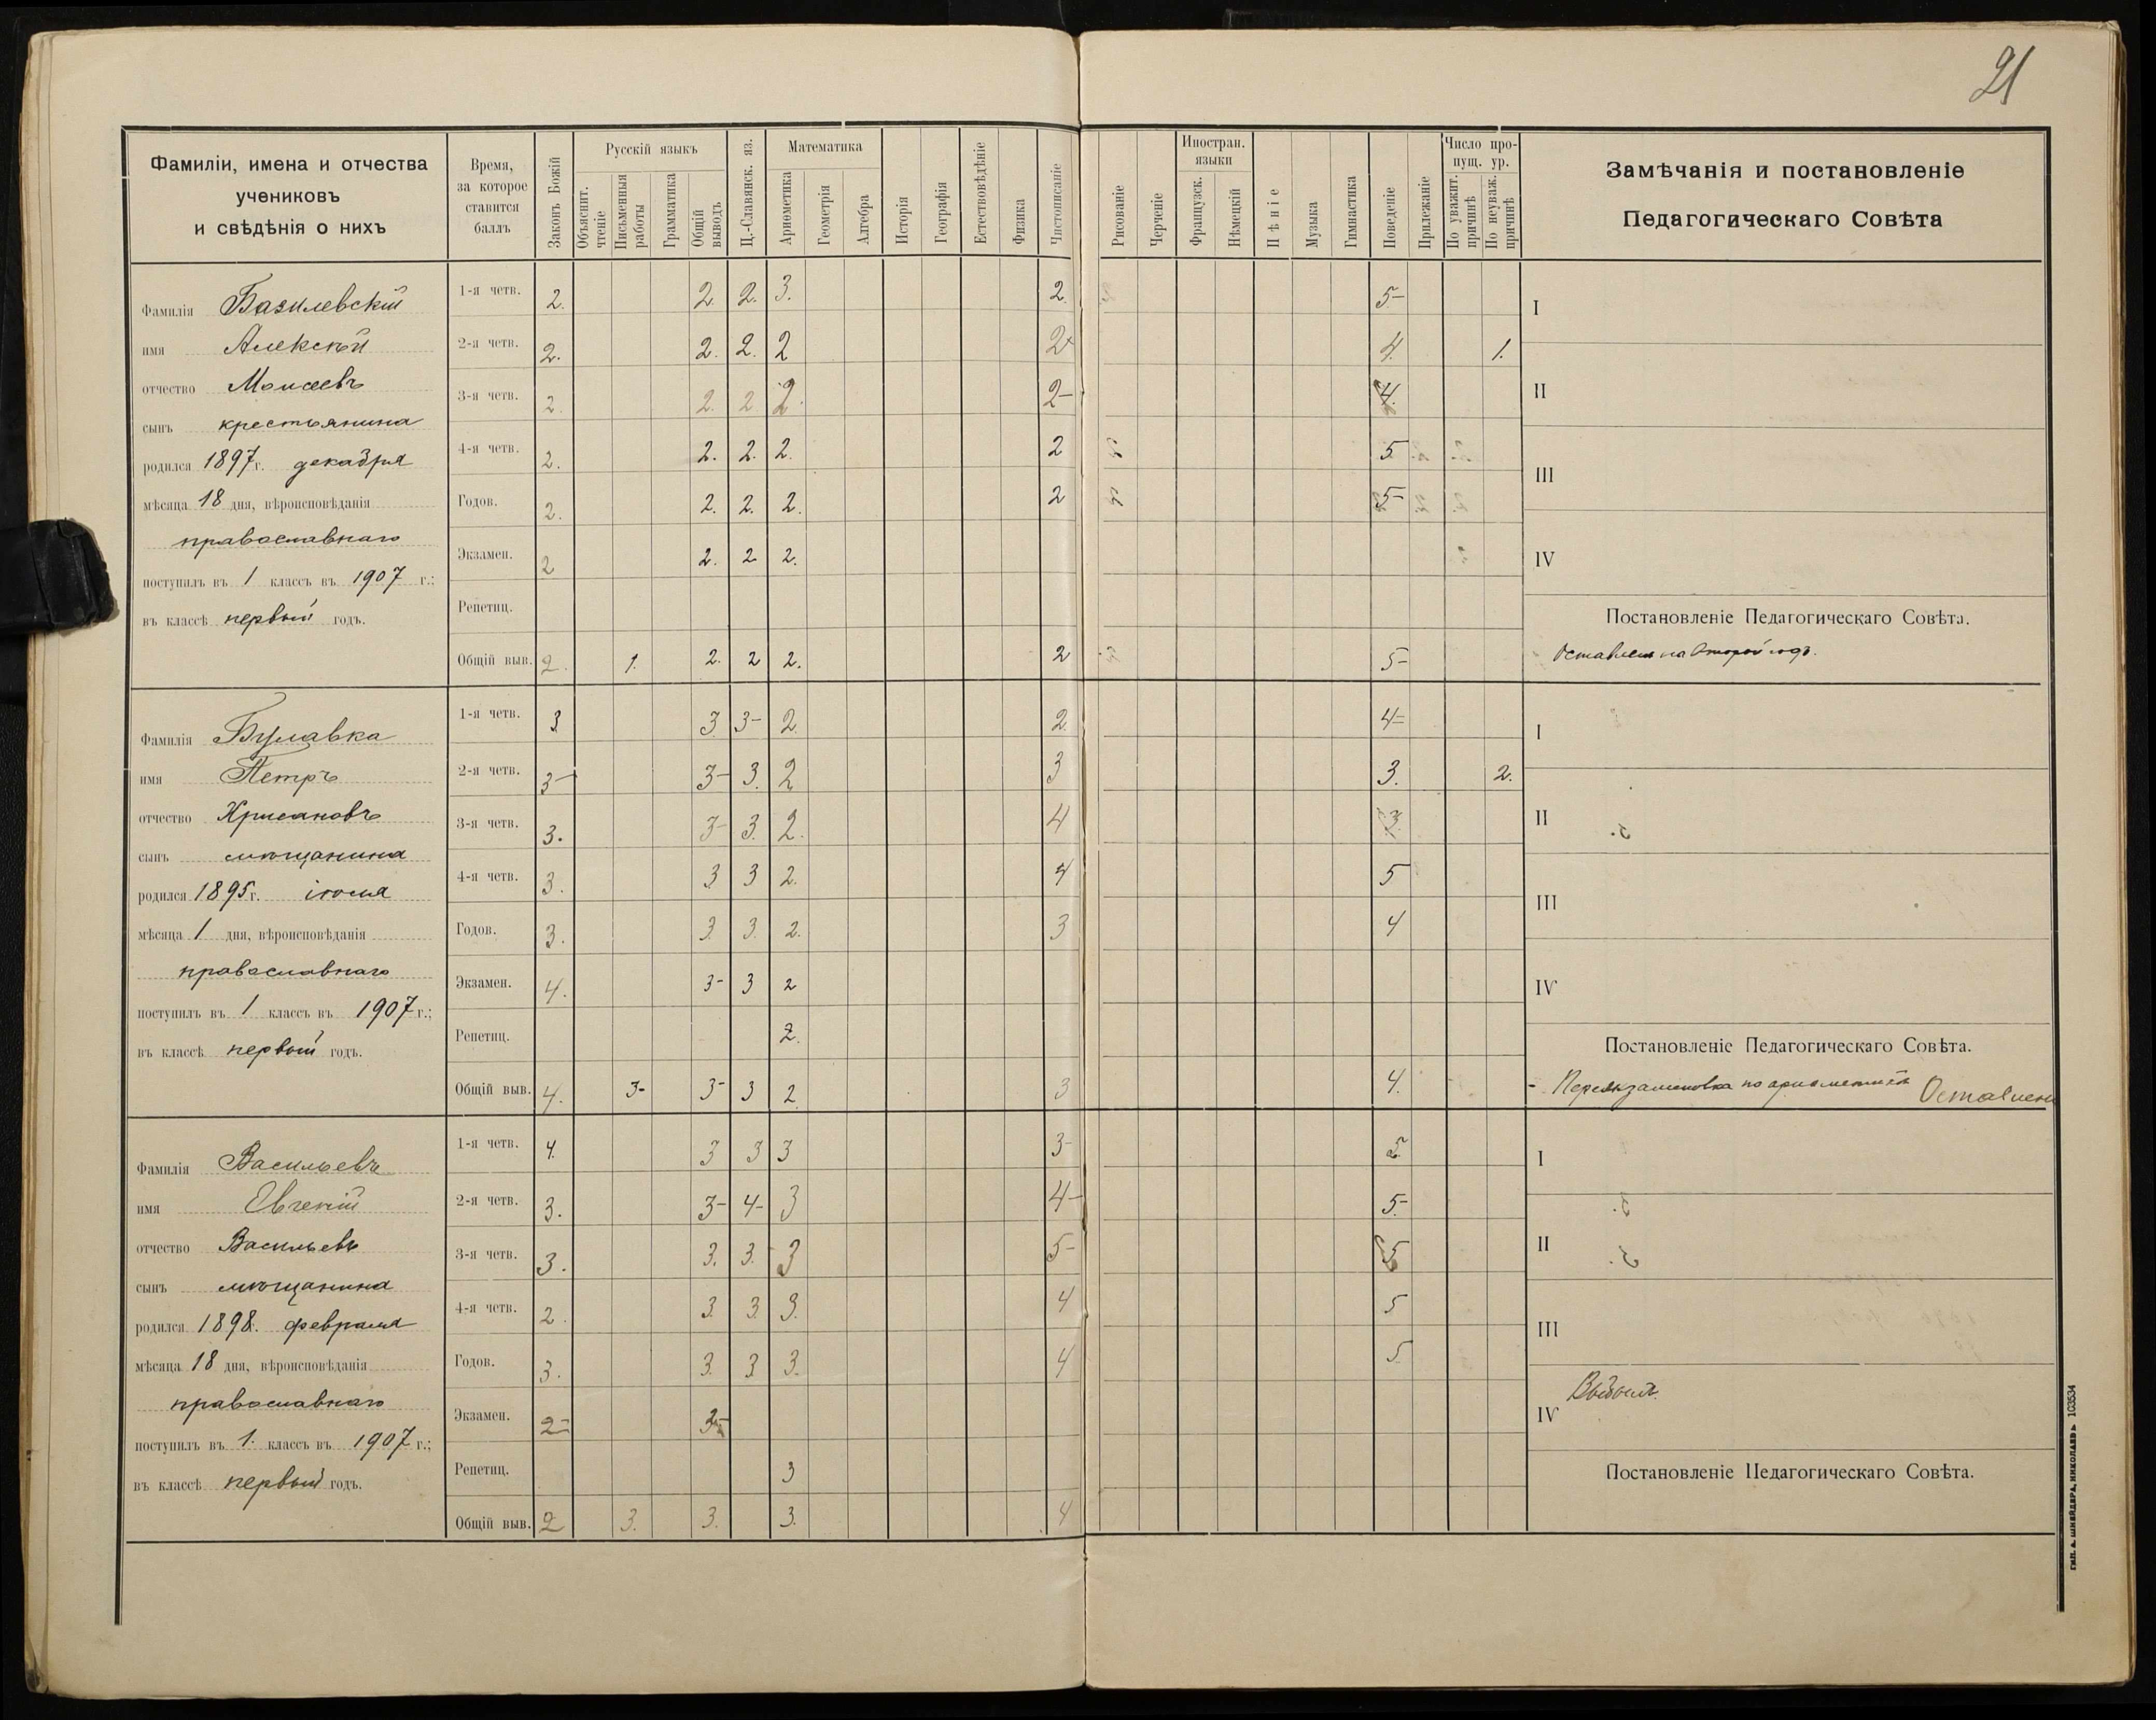 21
Фамиліи, имена и отчества
учениковъ
и свѣдѣнія о нихъ
Время,
за которое
ставится
баллъ
Законъ Божій
Русскій языкъ
Объяснит. чтеніе
Письменныя работы
Грамматика
Общій выводъ
Ц.-Славянск. яз.
Математика
Ариѳметика
Геометрія
Алгебра
Исторія
Географія
Естествовѣдѣніе
Физика
Чистописаніе
Рисованіе
Черченіе
Иностран. языки
Французск.
Нѣмецкій
Пѣніе
Музыка
Гимнастика
Поведеніе
Прилежаніе
Число пропущ. ур.
По уважит. причинѣ
По неуваж. причинѣ
Замѣчанія и постановленіе
Педагогическаго Совѣта
Фамилія Базилевскій
имя Алексѣй
отчество Моисеевъ
сынъ крестьянина
родился 1897 г. декабря
мѣсяца 18 дня, вѣроисповѣданія
православнаго
поступилъ въ 1 классъ въ 1907 г.;
въ классѣ первый годъ.
1-я четв. 2. 2. 2. 3. 2. 5-
2-я четв. 2. 2. 2. 2 2+ 4. 1.
3-я четв. 2. 2. 2 2. 2- 4.
4-я четв. 2. 2. 2. 2. 2 5
Годов. 2. 2. 2. 2. 2 5-
Экзамен. 2 2. 2 2.
Репетиц.
Общій выв. 2. 1. 2. 2 2. 2 5-
I
II
III
IV
Постановленіе Педагогическаго Совѣта.
Оставленъ на второй годъ.
Фамилія Булавка
имя Петръ
отчество Хрисановъ
сынъ мѣщанина
родился 1895 г. іюля
мѣсяца 1 дня, вѣроисповѣданія
православнаго
поступилъ въ 1 классъ въ 1907 г.;
въ классѣ первый годъ.
1-я четв. 3 3. 3- 2. 2. 4=
2-я четв. 3- 3- 3. 2 3 3. 2.
3-я четв. 3. 3- 3. 2. 4 3.
4-я четв. 3. 3 3 2. 4 5
Годов. 3. 3. 3. 2. 3 4
Экзамен. 4. 3- 3 2
Репетиц. 2.
Общій выв. 4. 3- 3- 3 2. 3 4.
I
II
III
IV
Постановленіе Педагогическаго Совѣта.
- Переэкзаменовка по ариѳметикѣ Оставленъ
Фамилія Васильевъ
имя Евгеній
отчество Васильевъ
сынъ мѣщанина
родился 1898 г. февраля
мѣсяца 18 дня, вѣроисповѣданія
православнаго
поступилъ въ 1. классъ въ 1907 г.;
въ классѣ первый годъ.
1-я четв. 4. 3 3 3 3- 5.
2-я четв. 3. 3- 4- 3 4- 5-
3-я четв. 3. 3. 3. 3 5- 5
4-я четв. 2. 3. 3 3. 4 5
Годов. 3. 3. 3 3. 4 5
Экзамен. 2= 3-
Репетиц. 3
Общій выв. 2 3. 3. 3. 4
I
II
III
IV Выбылъ.
Постановленіе Педагогическаго Совѣта.
ТИП. А. ШНЕЙДЕРА, НИКОЛАЕВЪ 103534